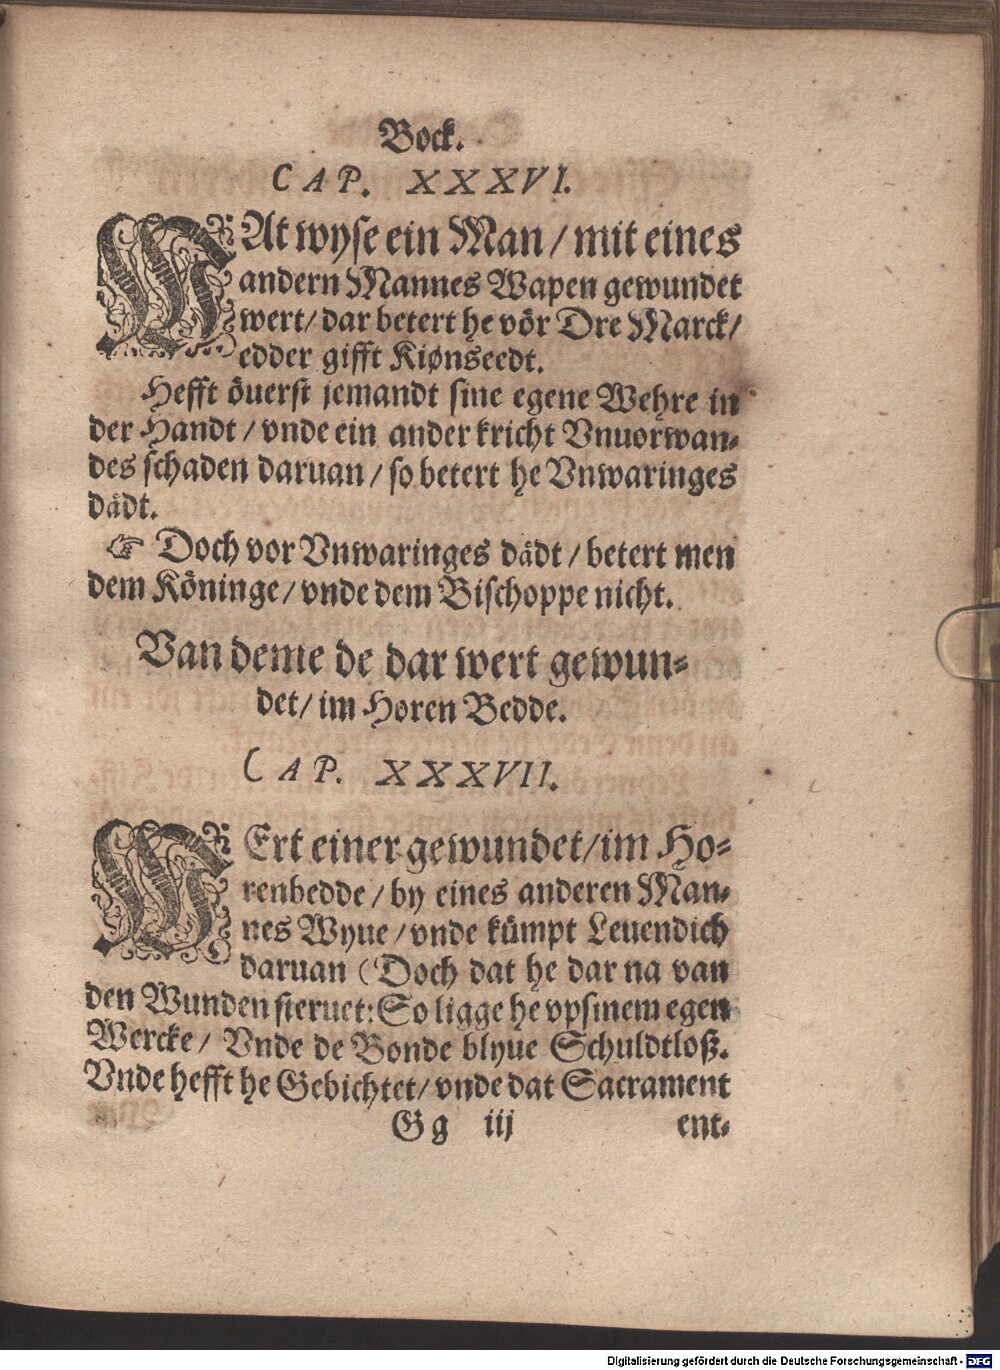 Bock.
CAP. XXXVI.
WAt wyse ein Man / mit eines
andern Mannes Wapen gewundet
wert / dar betert he vör Dre Marck /
edder gifft Kiønseedt.
Hefft öuerst jemandt sine egene Wehre in
der Handt / vnde ein ander kricht Vnuorwan-
des schaden daruan / so betert he Vnwaringes
dådt.
☞ Doch vor Vnwaringes dådt / betert men
dem Köninge / vnde dem Bischoppe nicht.
Van deme de dar wert gewun-
det / im Horen Bedde.
CAP. XXXVII.
WErt einer gewundet / im Ho-
renbedde / by eines anderen Man-
nes Wyue / vnde kümpt Leuendich
daruan (Doch dat he dar na van
den Wunden steruet: So ligge he vpsinem egen
Wercke / Vnde de Bonde blyue Schuldtloß.
Vnde hefft he Gebichtet / vnde dat Sacrament
Gg iij ent-
Digitalisierung gefördert durch die Deutsche Forschungsgemeinschaft - DFG